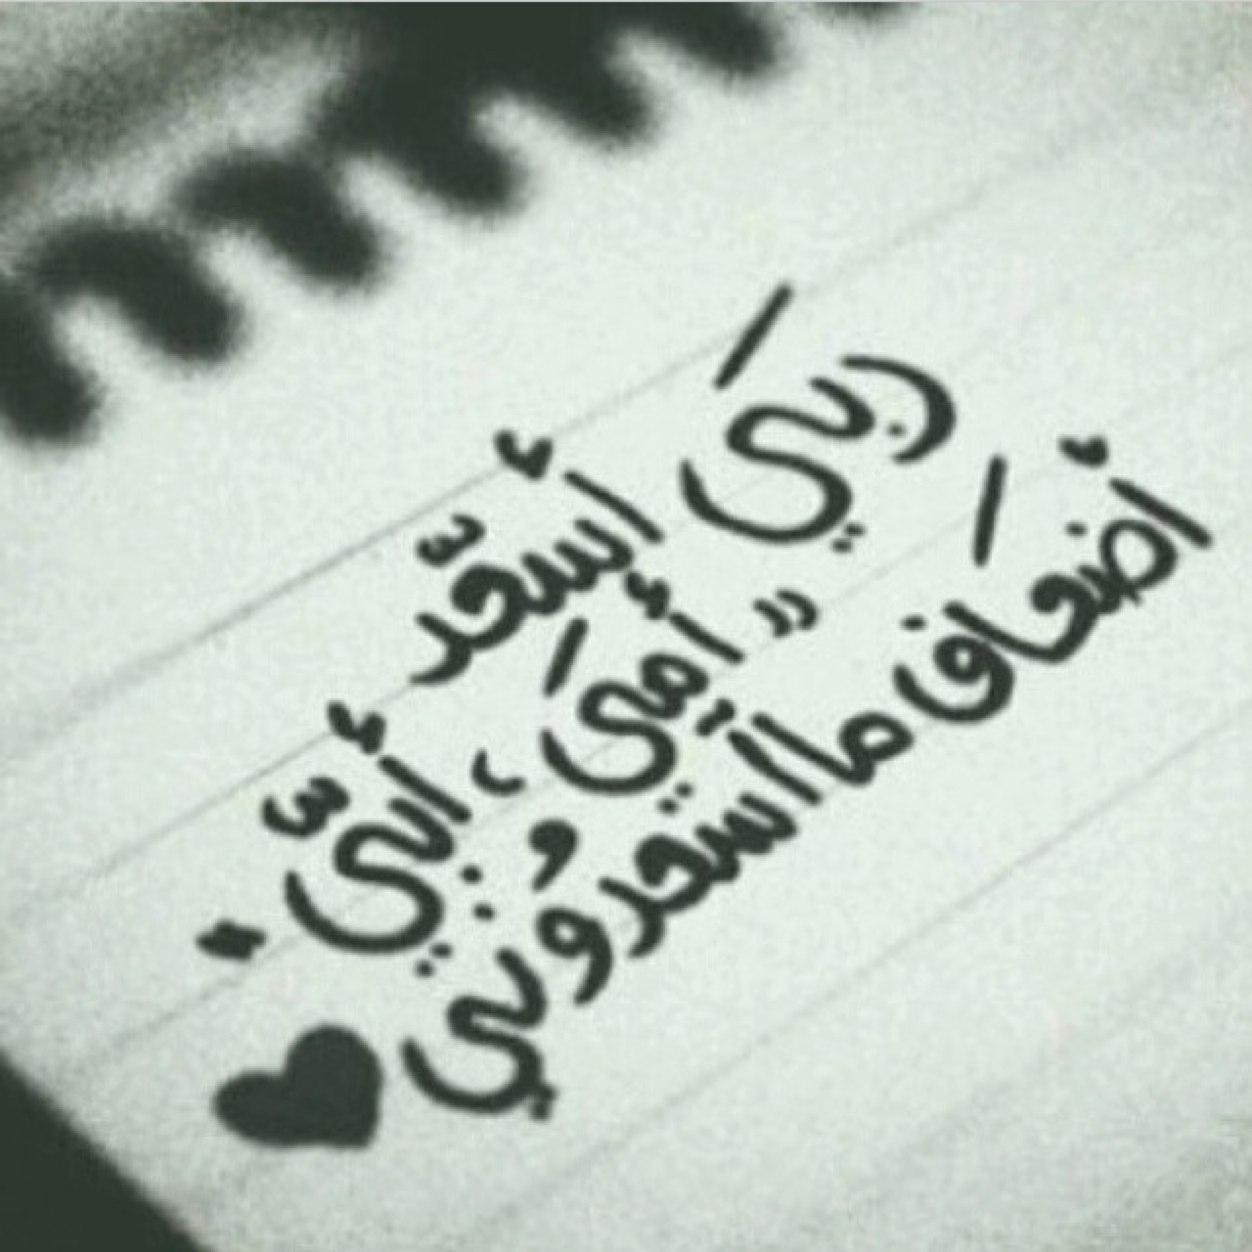 ربيَ أسعدّ
" أميَ ، أبيّ "
أضَعاف ما أسعدوُني